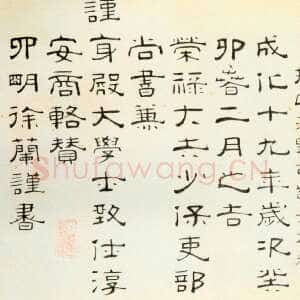 成化十九年歲次癸
卯春二月之吉
榮祿大夫少保吏部
尚書兼
謹身殿大學士致仕淳
安商輅贊
四明徐蘭謹書
Shufawang.CN